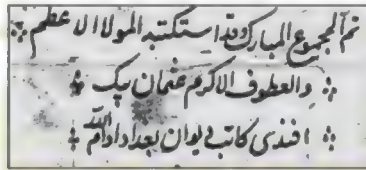 تم المجموع المبارك وقد استكتبه المولا الاعظم
والعطوف الاكرم عثمان بيك
افندى كاتب ديوان بغداد ادام الله